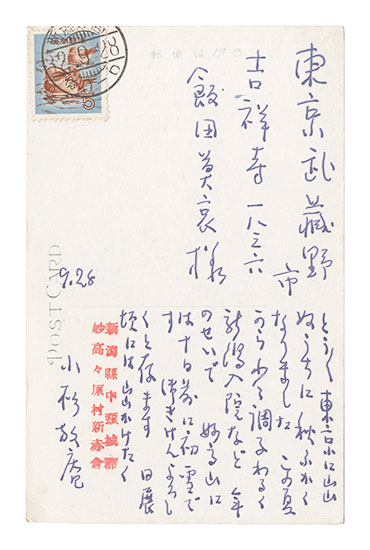 郵便はがき
東京武蔵野市
吉祥寺一八三六
飯田莫哀様
とう〱東京に出
ぬうちに秋ふかく
なりました この夏
から少々調子わるく
新潟入院など 年
のせいで 妙高山に
は十日前に初雪で
す 御きげんよろし
くと存ます 日展
頃には出かけたく
小杉放庵
9.28
新潟縣中頸城郡
妙高々原村新赤倉
POST CARD
5